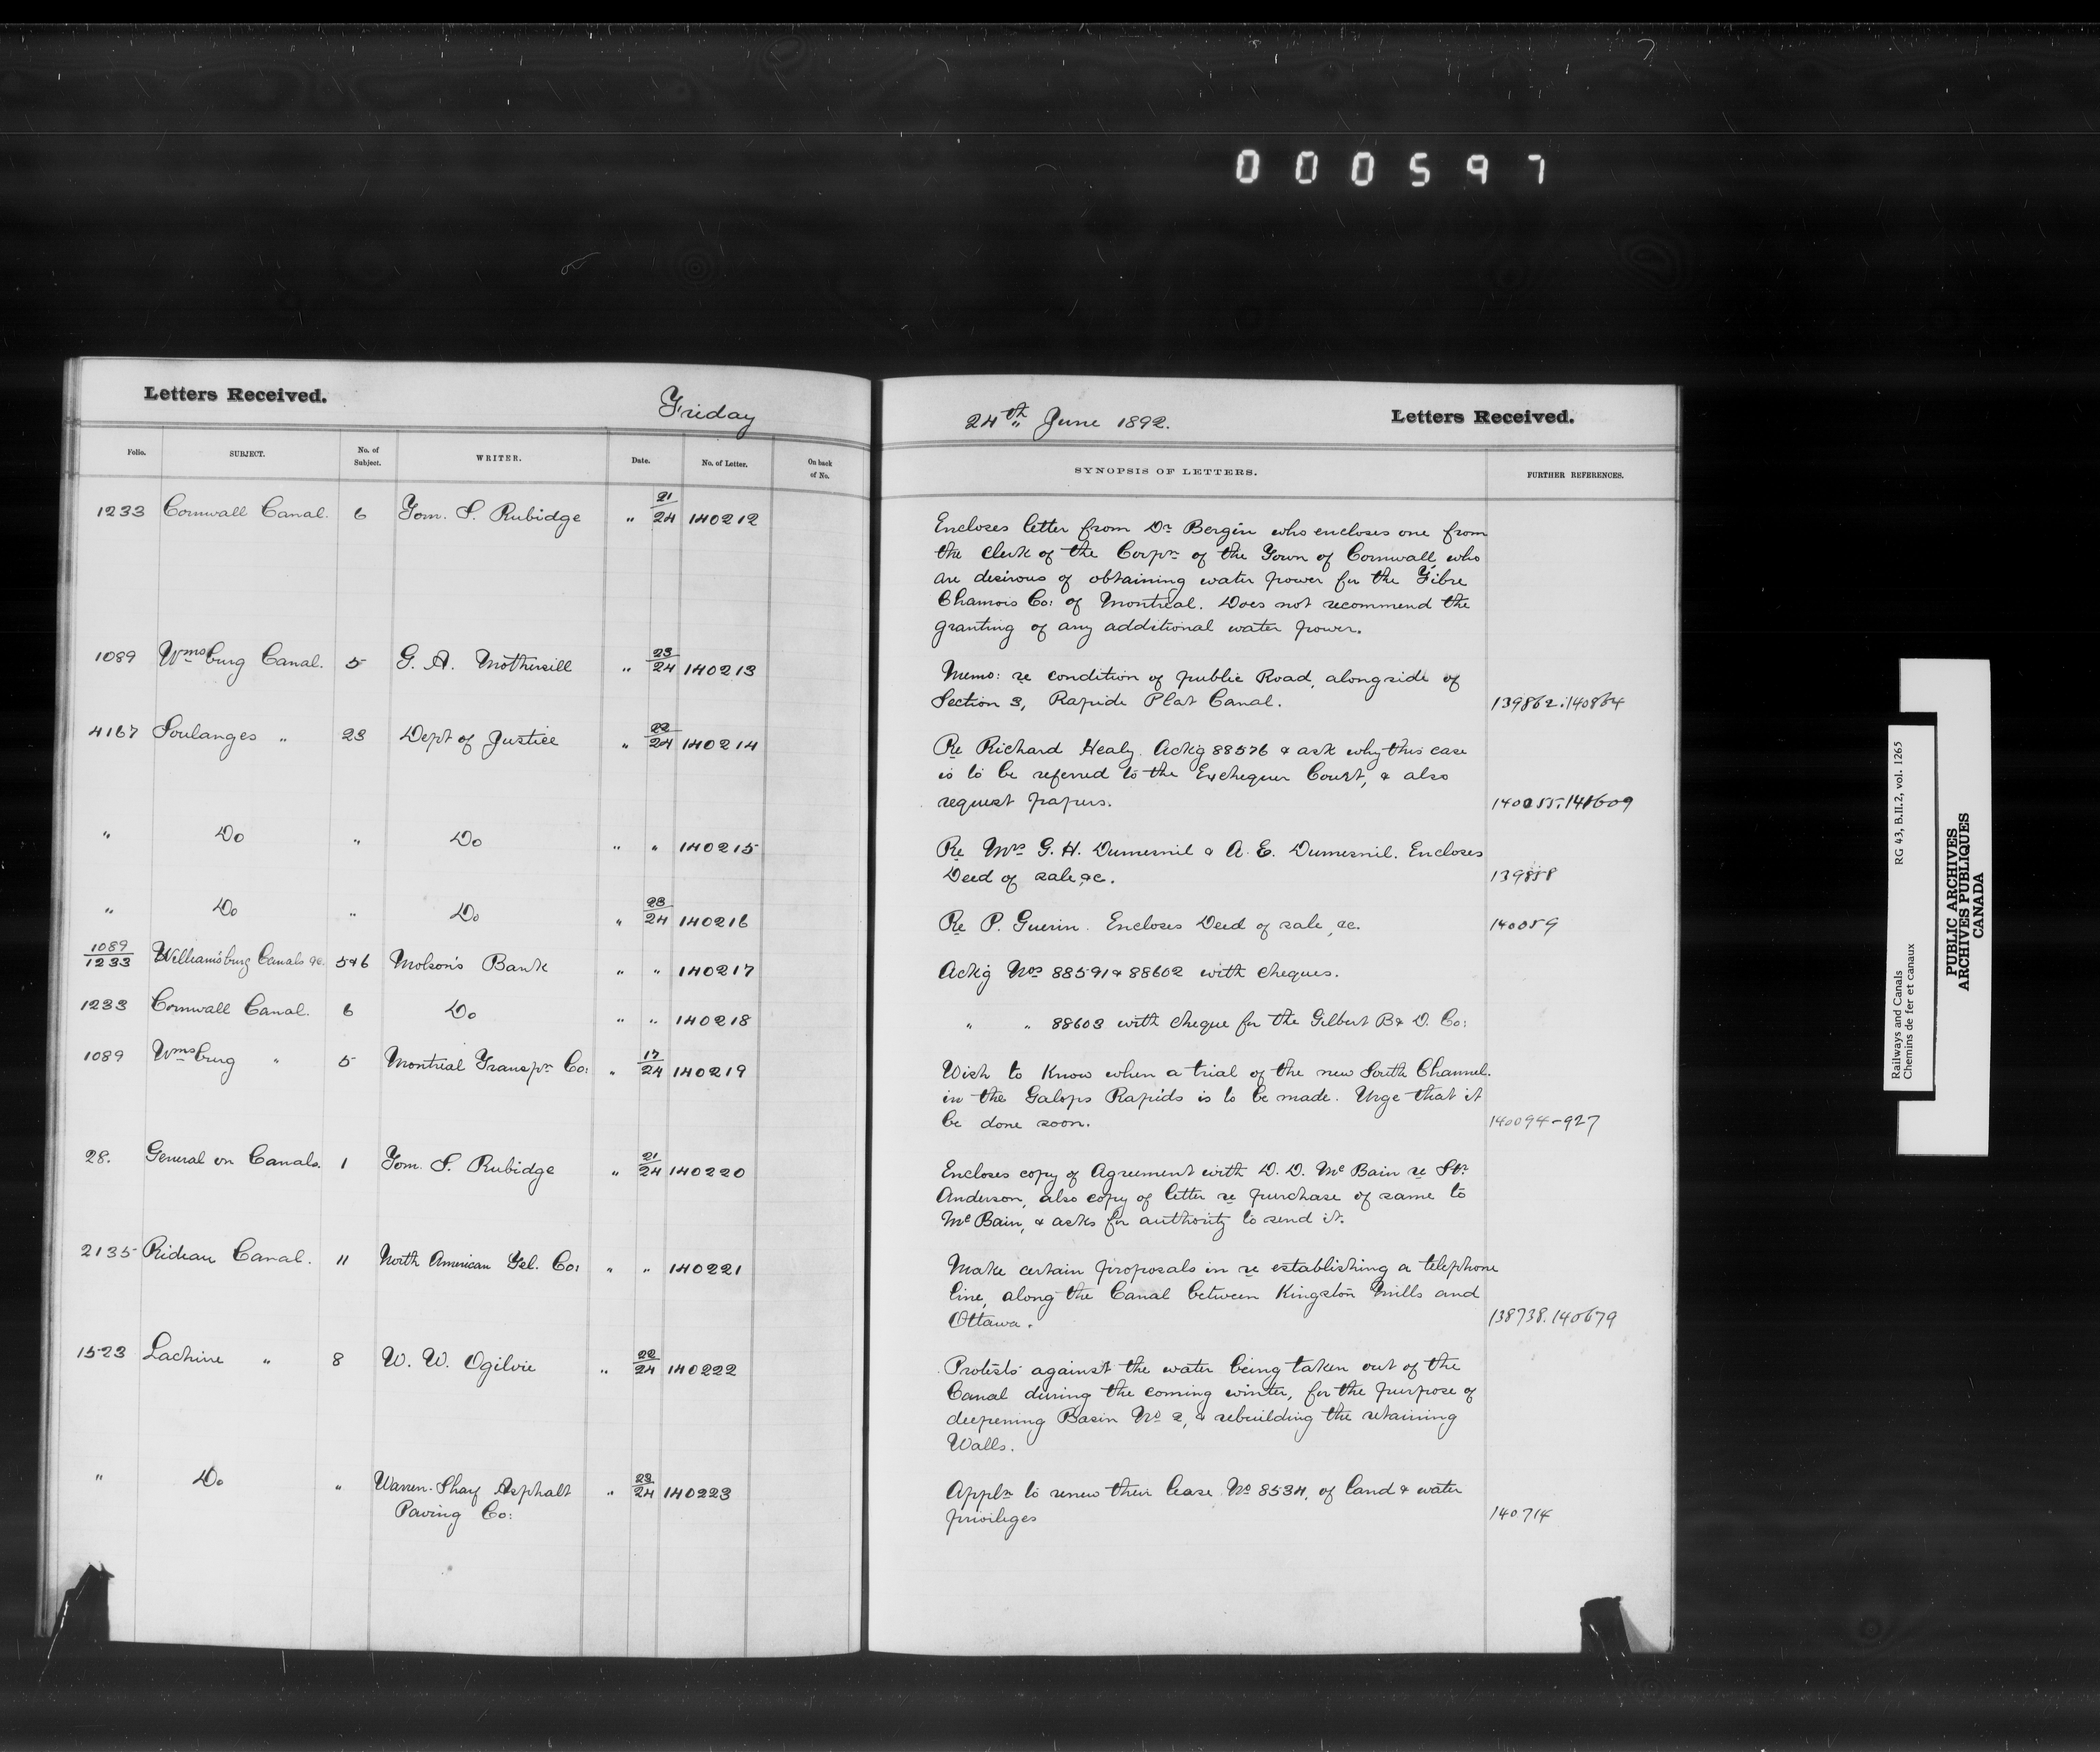 0 0 0 5 9 7
Letters Received.
Friday
Folio. SUBJECT. No. of Subject. WRITER. Date. No. of Letter. On back of No.
1233 Cornwall Canal. 6 Tom. S. Rubidge " 21/24 140212
1089 Wmsburg Canal. 5 G. A. Mothersill " 23/24 140213
4167 Soulanges " 23 Dept of Justice " 22/24 140214
" Do " Do " " 140215
" Do " Do " 23/24 140216
1089/1233 Williamsburg Canals &c. 5&6 Molson's Bank " " 140217
1233 Cornwall Canal. 6 Do " " 140218
1089 Wmsburg " 5 Montreal Transpn Co: " 17/24 140219
28. General on Canals. 1 Tom. S. Rubidge " 21/24 140220
2135 Rideau Canal. 11 North American Tel. Co: " " 140221
1523 Lachine " 8 W. W. Ogilvie " 22/24 140222
" Do " Warren-Sharf Asphalt " 23/24 140223
Paving Co:
24th June 1892.
Letters Received.
SYNOPSIS OF LETTERS. FURTHER REFERENCES.
Encloses letter from Dr Bergin who encloses one from
the Clerk of the Corpn of the Town of Cornwall, who
are desirous of obtaining water power for the Fibre
Chamois Co: of Montreal. Does not recommend the
granting of any additional water power.
Memo: re condition of public Road, alongside of
Section 3, Rapide Plat Canal. 139862.140864
Re Richard Healy. Ackg 88576 & ask why this case
is to be referred to the Exchequer Court, & also
request papers.
Re Mrs G. H. Dumesnil & A. E. Dumesnil. Encloses
Deed of sale, &c. 139858
Re P. Guerin. Encloses Deed of sale, &c. 140059
Ackg Nos 88591 & 88602 with cheques.
" " 88603 with cheque for the Gilbert B & D. Co:
Wish to know when a trial of the new South Channel.
in the Galops Rapids is to be made. Urge that it
be done soon. 140094-927
Encloses copy of Agreement with D. D. McBain re Str.
Anderson, also copy of letter re purchase of same to
McBain, & asks for authority to send it.
Make certain proposals in re establishing a telephone
line, along the Canal between Kingston Mills and
Ottawa. 138738.140679
Protests against the water being taken out of the
Canal during the coming winter, for the purpose of
deepening Basin No 2, & rebuilding the retaining
Walls.
Appln to renew their lease No 8534, of land & water
privileges 140714
Railways and Canals RG 43, B.II.2, vol. 1265
Chemins de fer et canaux
PUBLIC ARCHIVES
ARCHIVES PUBLIQUES
CANADA